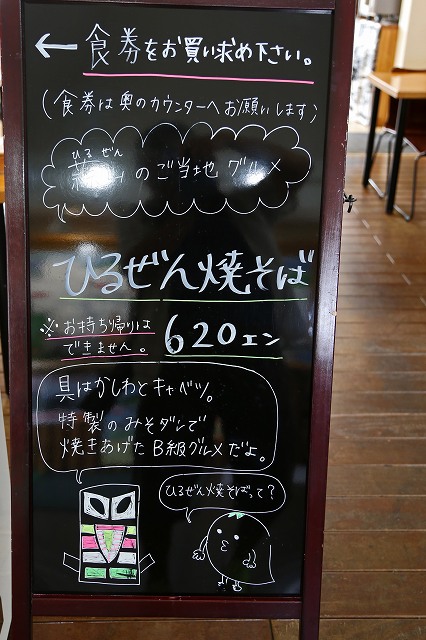 ← 食券をお買い求め下さい。
(食券は奥のカウンターへお願いします)
ひるぜん
のご当地グルメ
ひるぜん焼そば
※お持ち帰りは
できません。
620エン
具はかしわとキャベツ。
特製のみそダレで
焼きあげたB級グルメだよ。
ひるぜん焼そばって?